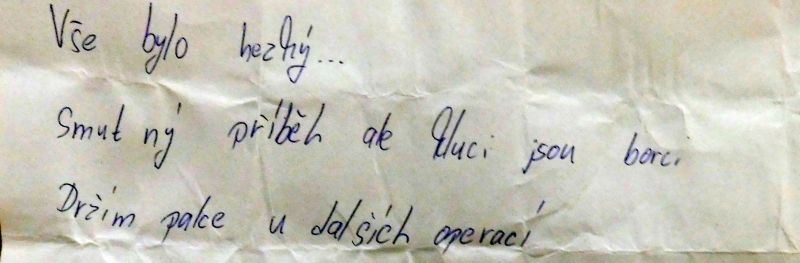 Vše bylo hezký...
Smutný příběh ale kluci jsou borci
Držím palce u dalších operací